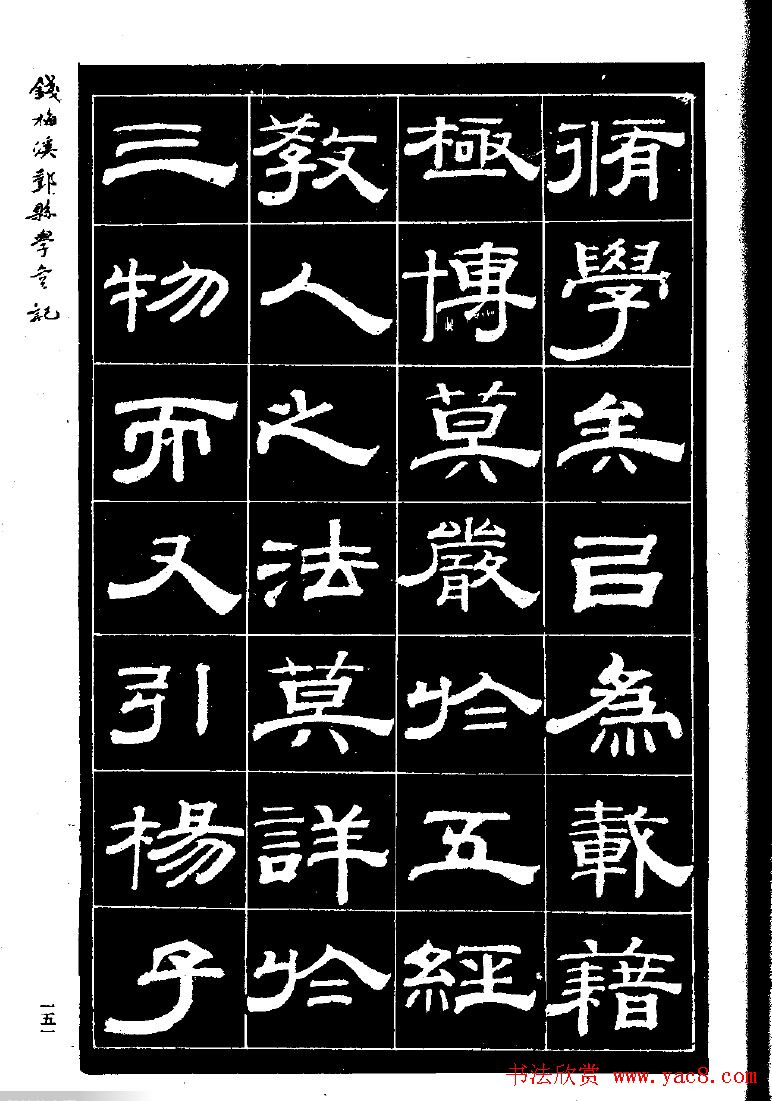 脩學矣㠯為載藉
極博莫嚴於五經
教人之法莫詳於
三物而又引楊子
錢梅溪鄞縣學記
一五一
书法欣赏 www.yac8.com